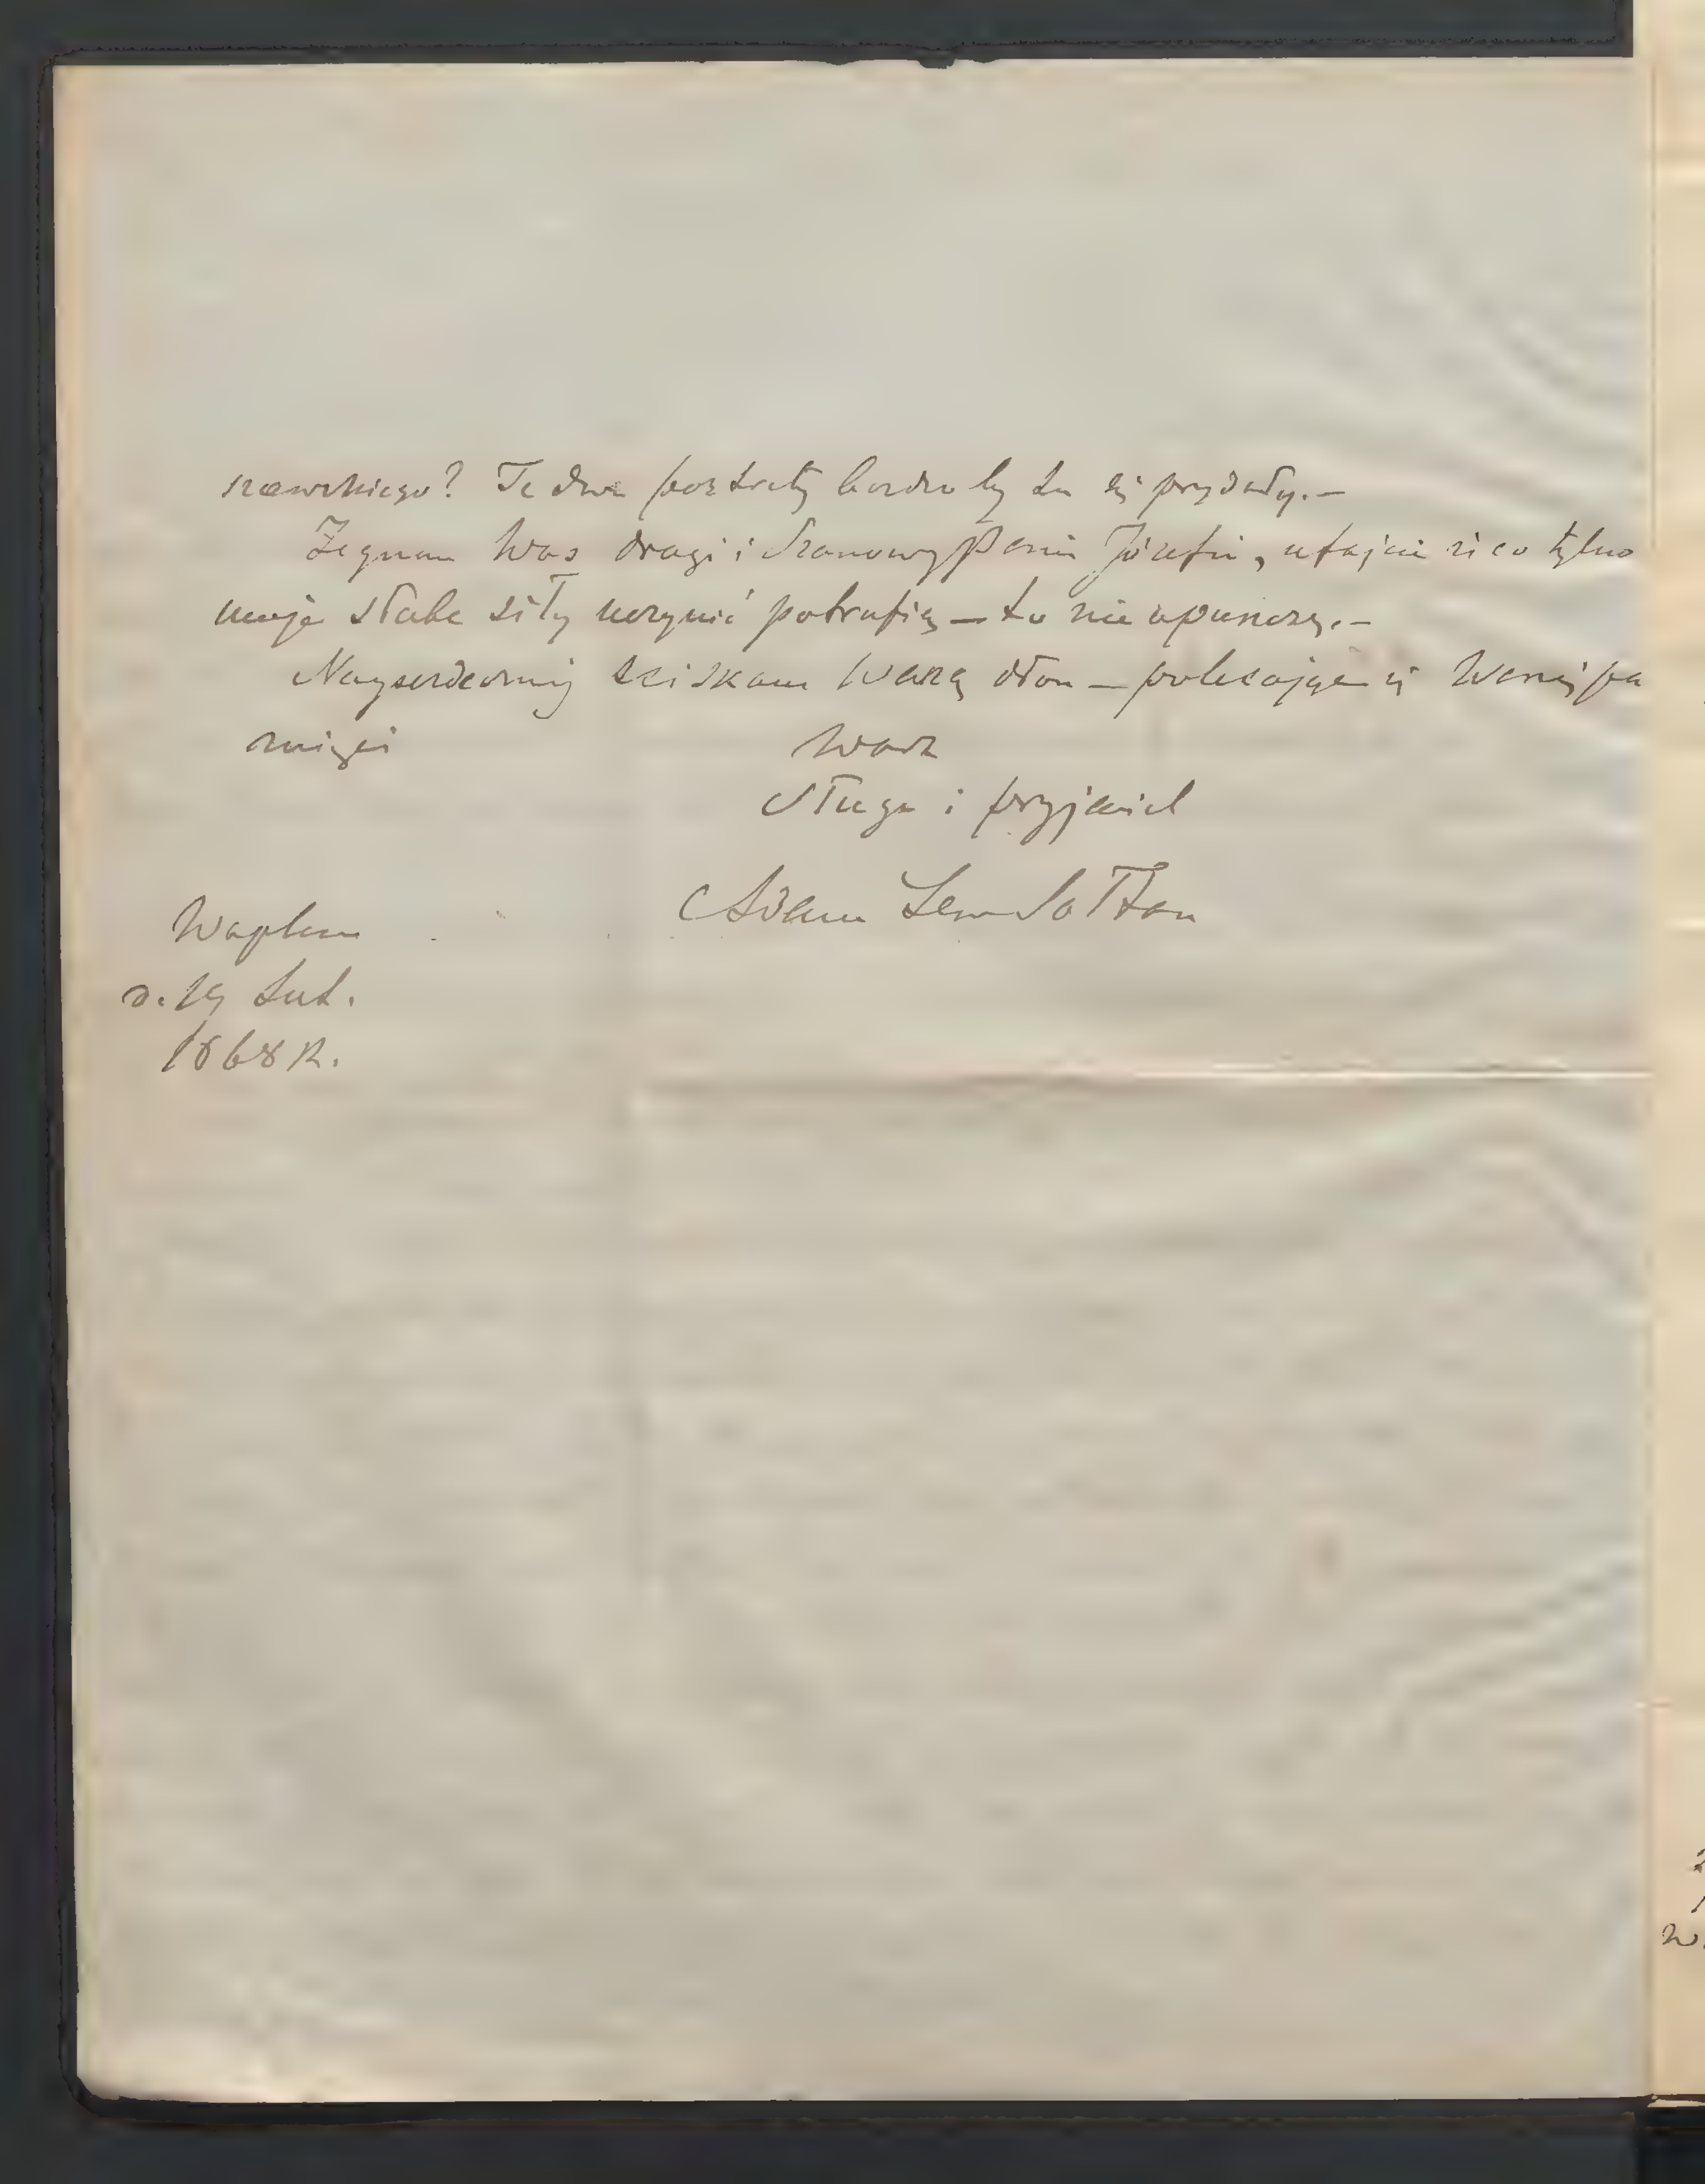 szewskiego? Te dwa portrety bardzo by tu się przydały.—
Żegnam Was drogi i Szanowny Panie Józefie, ufajcie iż co tylko
moje słabe siły uczynić potrafią — to nie opuszczę.—
Nayserdeczniej ściskam Waszą dłoń — polecając się Waszej pa
mięci
Wasz
Sługa i przyjaciel
Adam Lew Sołtan
Waplewo
d. 19 Lut.
1868 R.